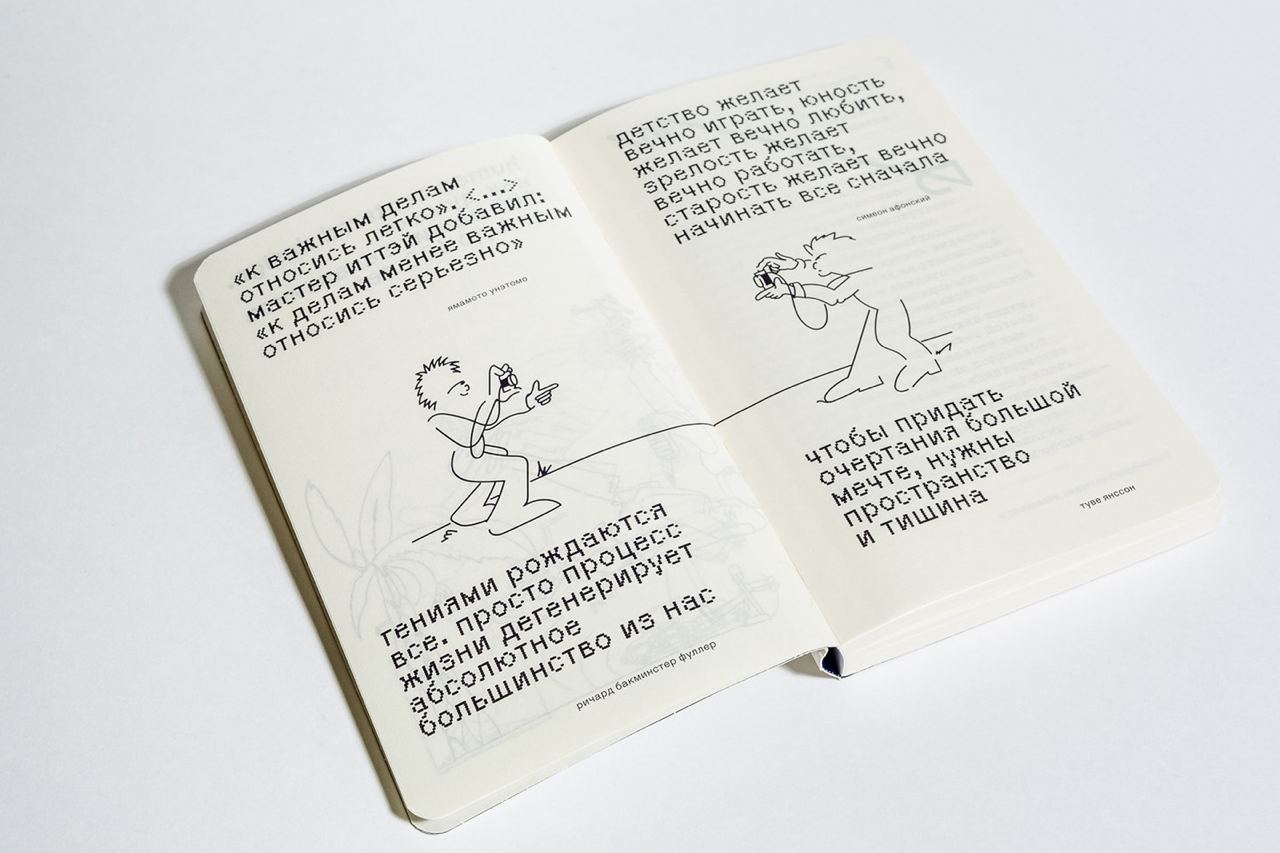 «к важным делам
относись легко». <...>
мастер иттэй добавил:
«к делам менее важным
относись серьезно»
ямамото унэтомо
гениями рождаются
все. просто процесс
жизни дегенерирует
абсолютное
большинство из нас
ричард бакминстер фуллер
детство желает
вечно играть, юность
желает вечно любить,
зрелость желает
вечно работать,
старость желает вечно
начинать все сначала
симеон афонский
чтобы придать
очертания большой
мечте, нужны
пространство
и тишина
туве янссон